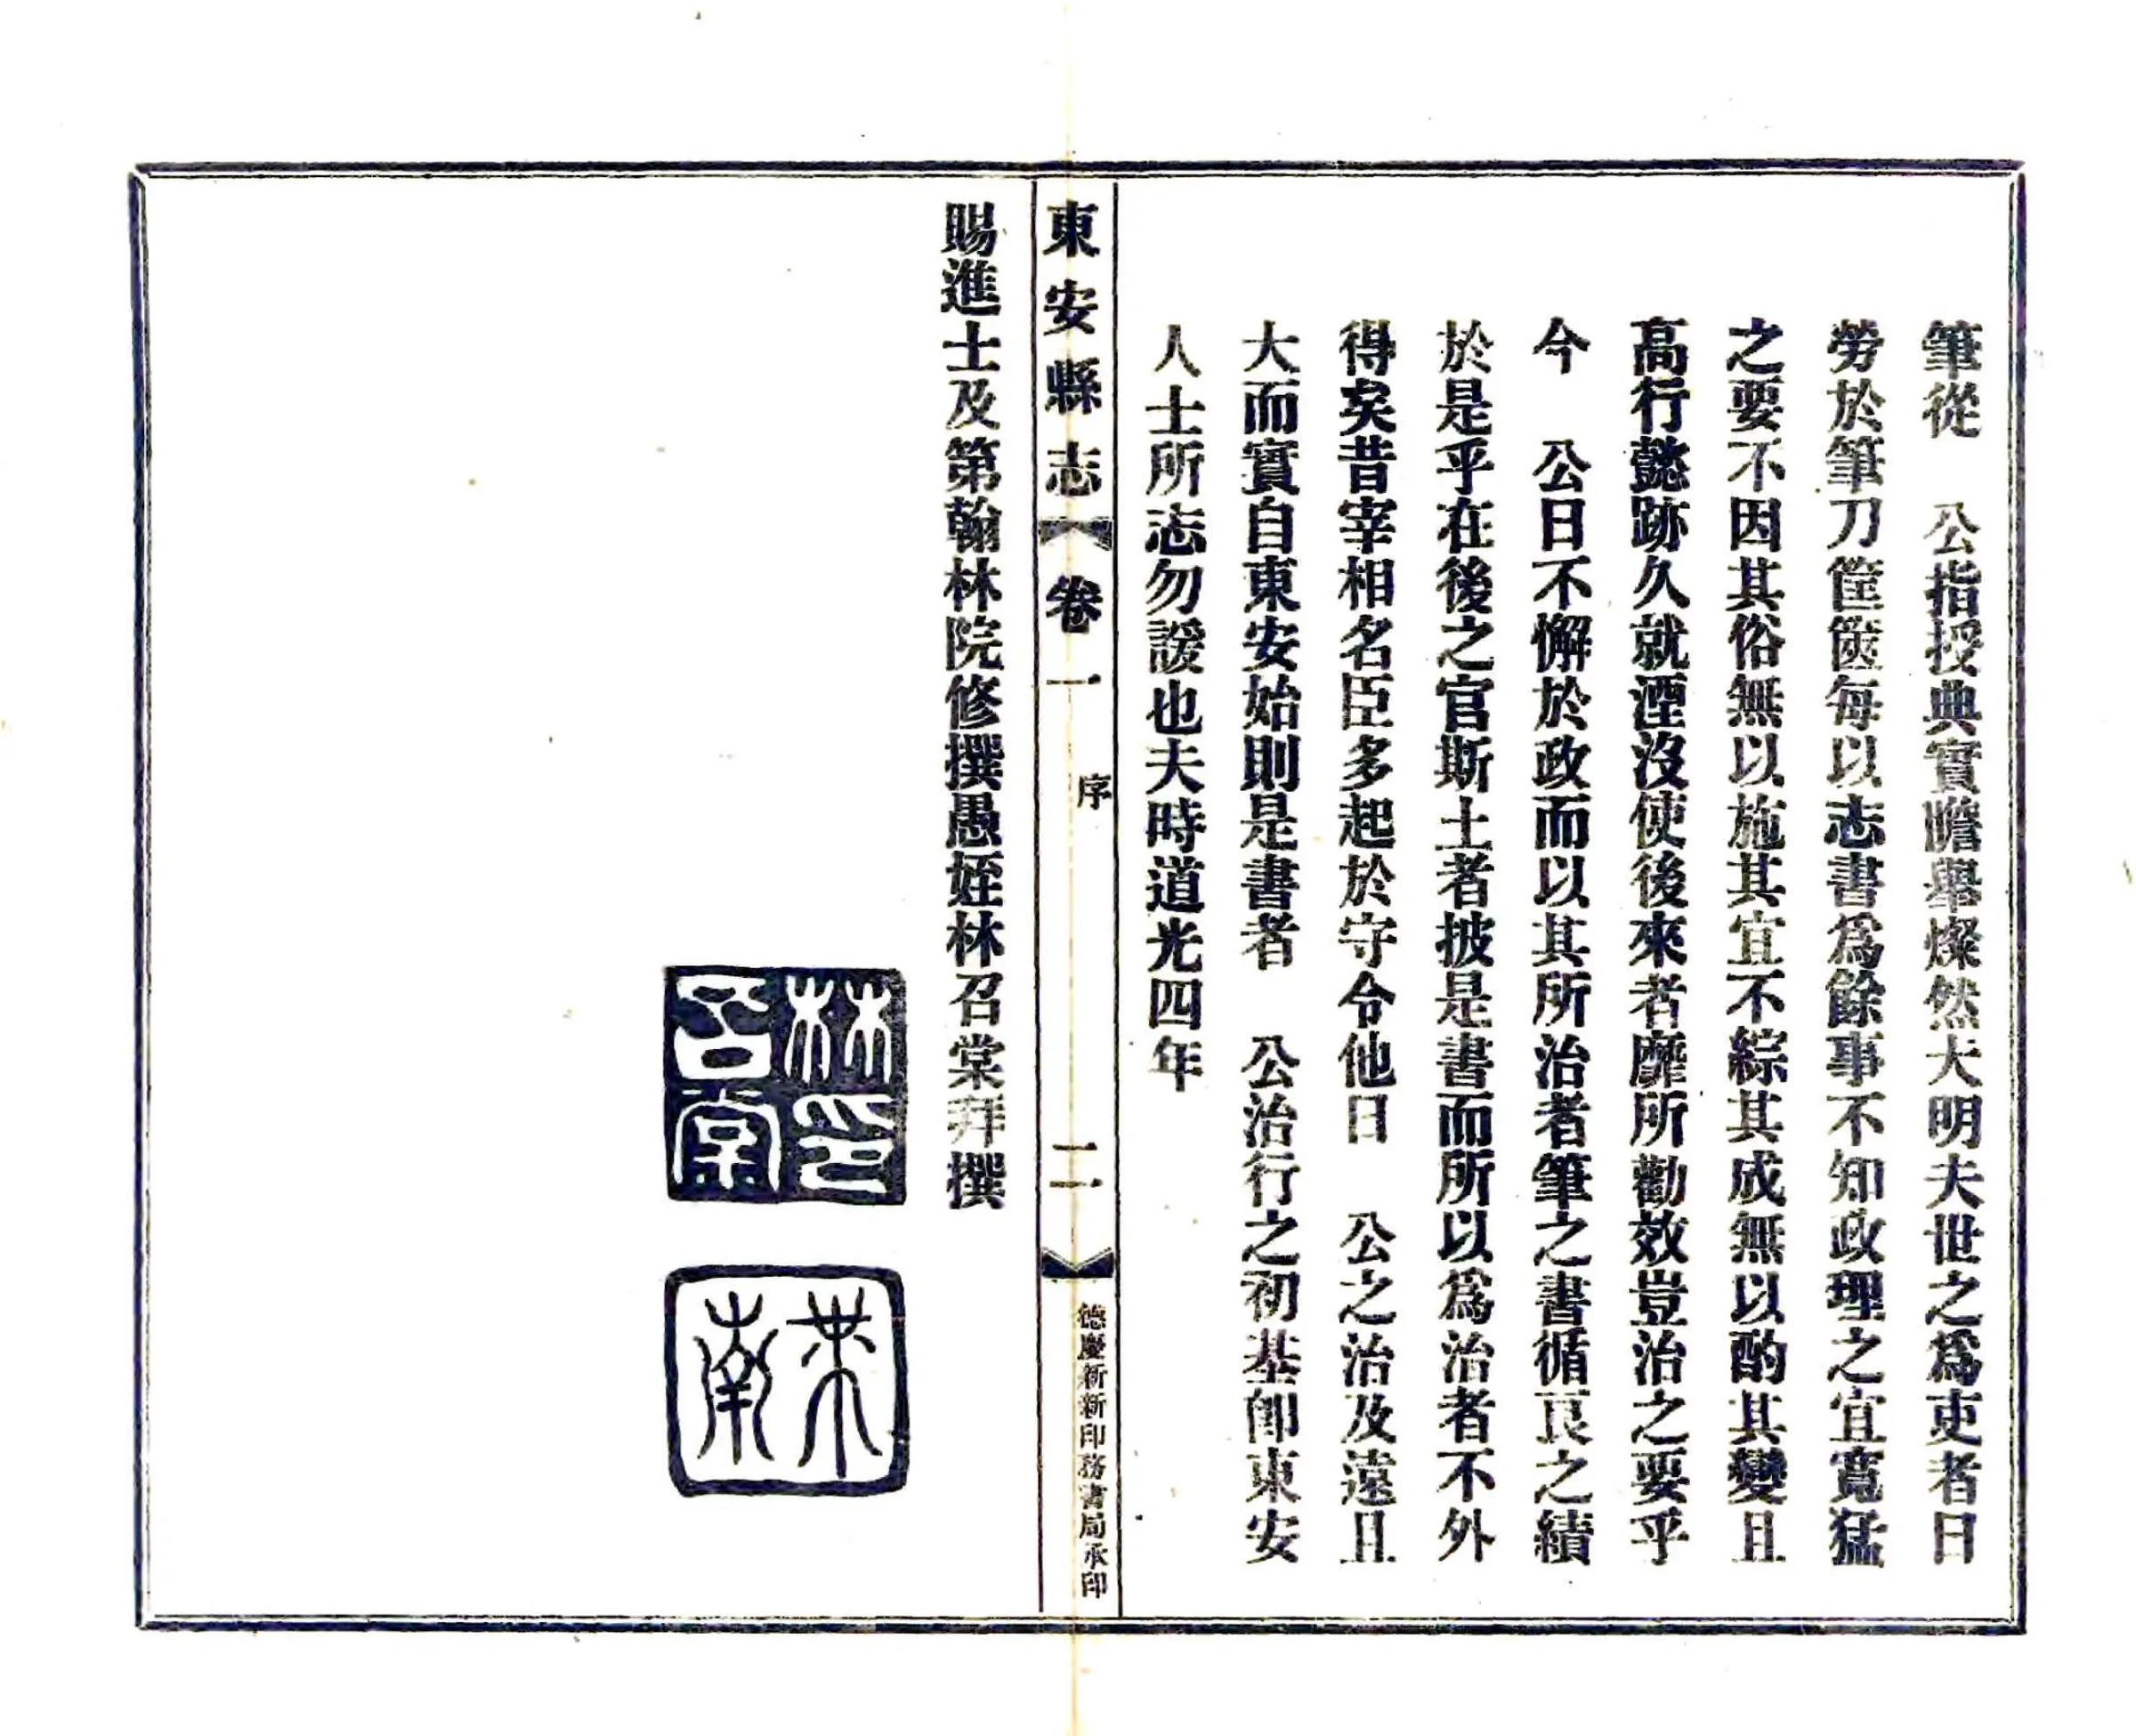 筆從　公指授典實瞻舉燦然大明夫世之爲吏者日
勞於筆刀筐篋每以志書爲餘事不知政理之宜寬猛
之要不因其俗無以施其宜不綜其成無以酌其變且
高行懿跡久就湮沒使後來者靡所勸效豈治之要乎
今　公日不懈於政而以其所治者筆之書循良之績
於是乎在後之官斯土者披是書而所以爲治者不外
得矣昔宰相名臣多起於守令他日　公之治及遠且
大而實自東安始則是書者　公治行之初基卽東安
人士所志勿諼也夫時道光四年
東安縣志 卷一 序 二 德慶新新印務書局承印
賜進士及第翰林院修撰愚姪林召棠拜撰
林召棠印
芾南